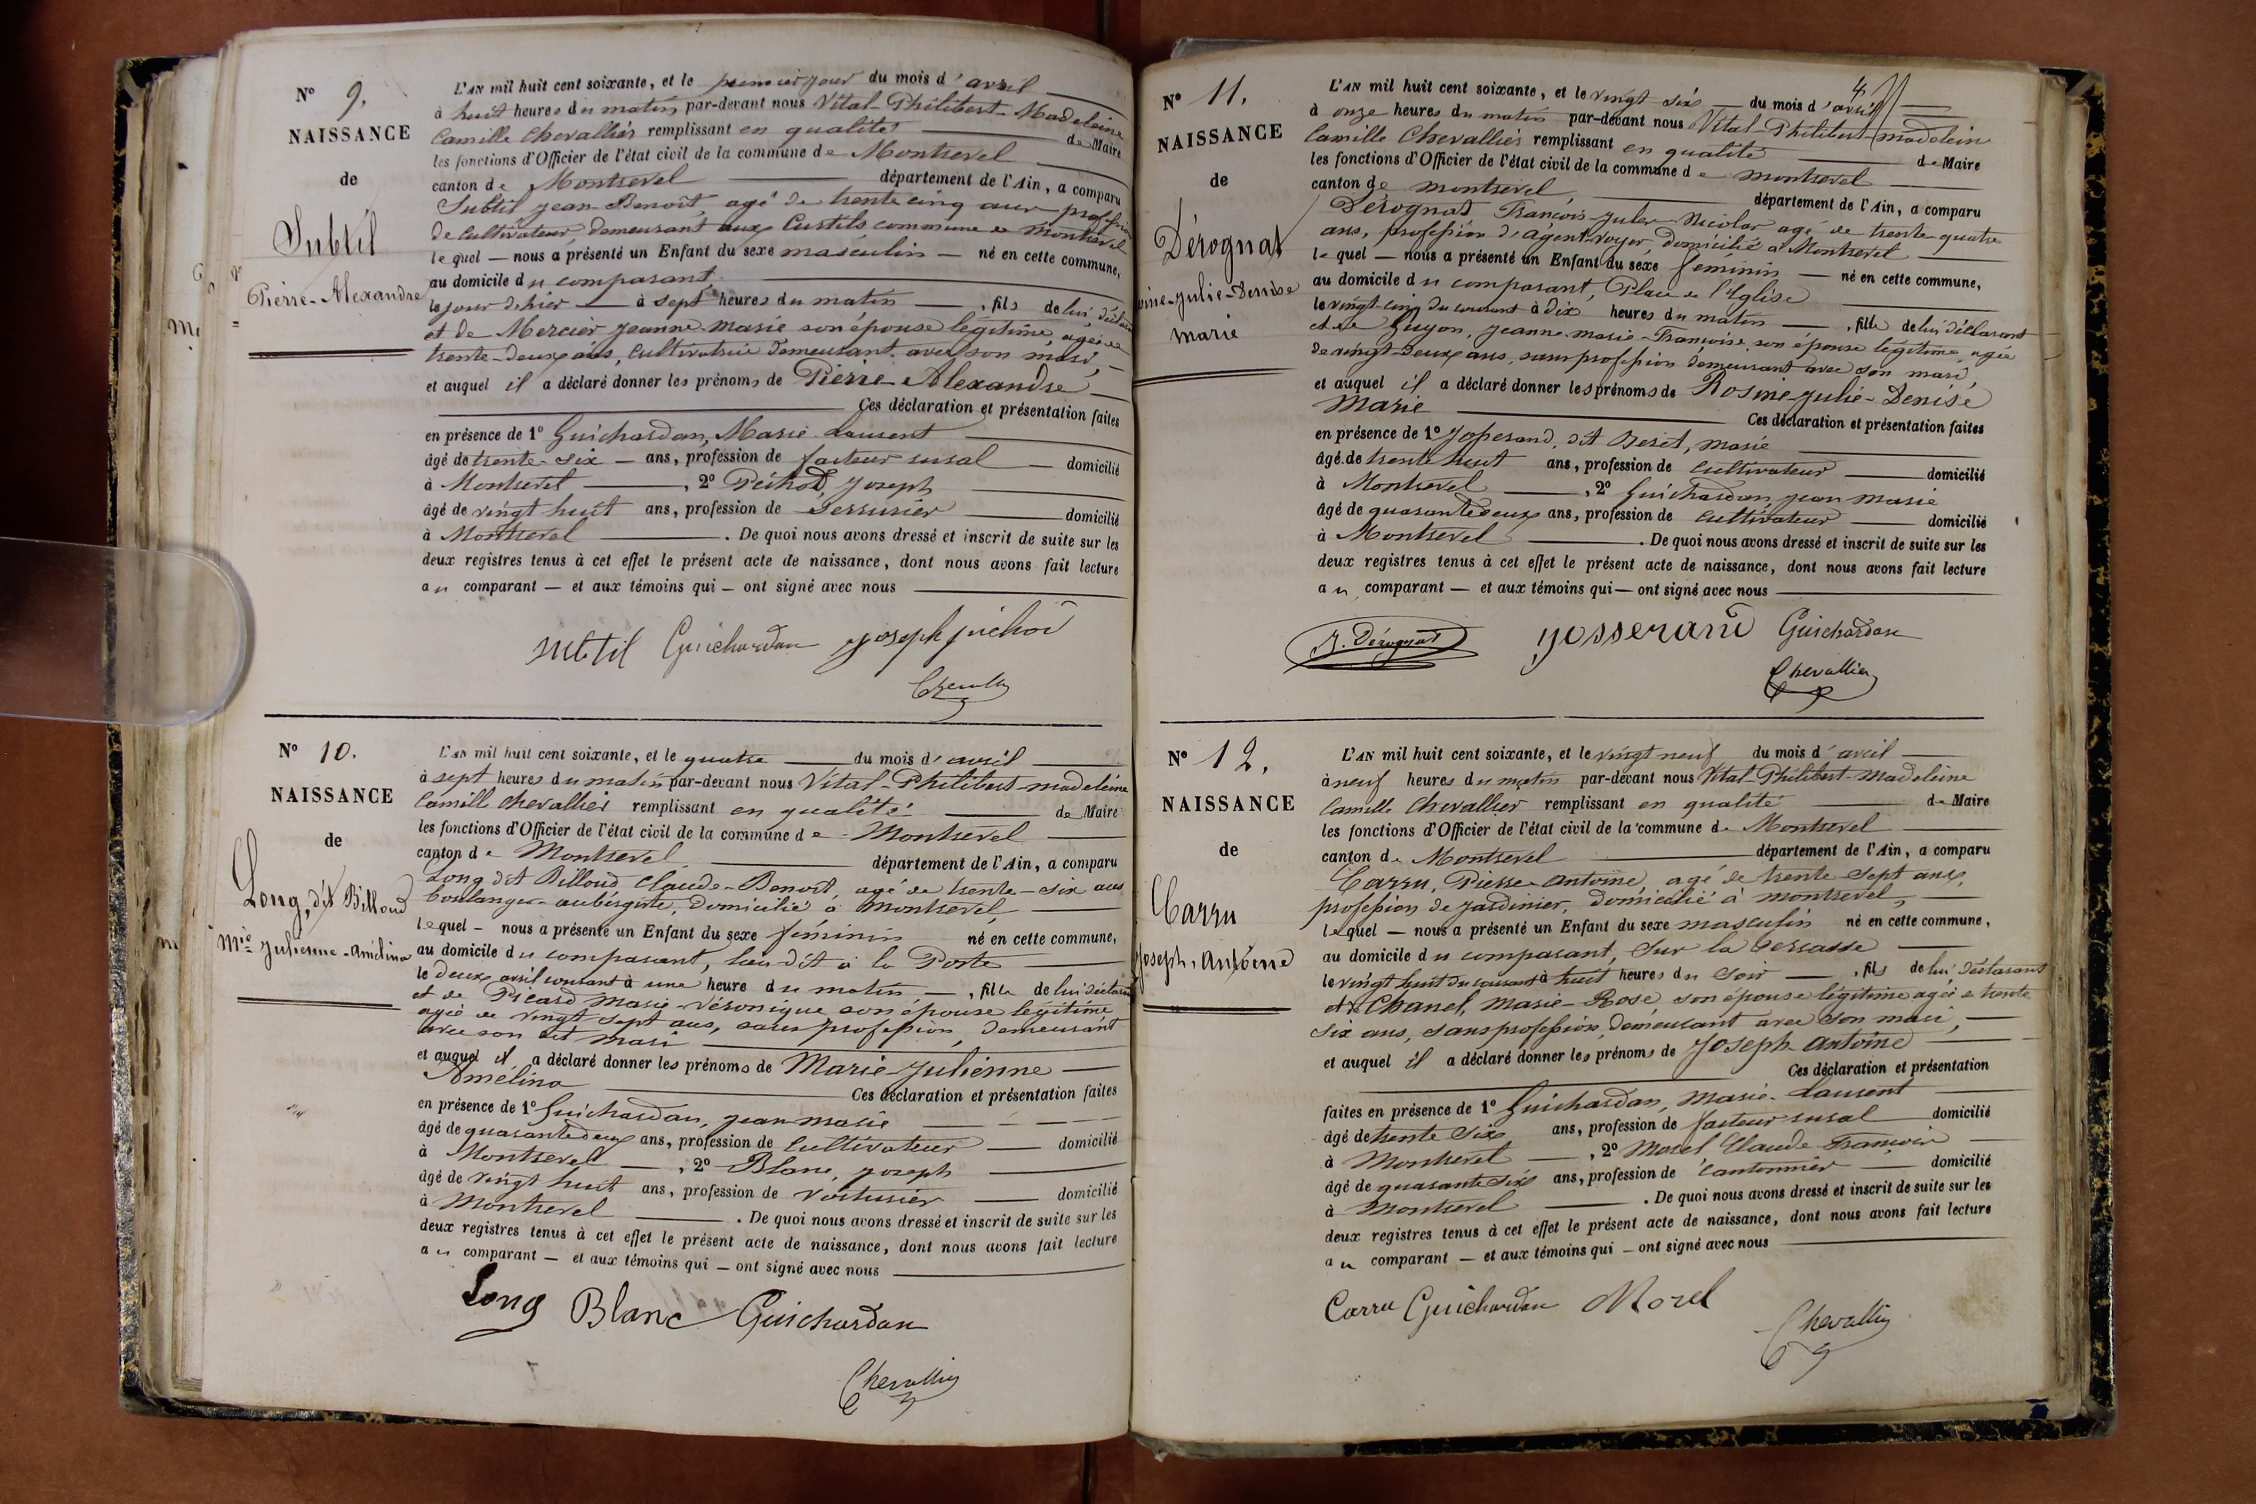 N° 9.
NAISSANCE
de
Subtil
Pierre-Alexandre
L'AN mil huit cent soixante, et le premier jour du mois d'avril
à huit heures du matin par-devant nous Vital-Philibert-Madeleine
Camille Chevallier remplissant en qualité de Maire
les fonctions d'Officier de l'état civil de la commune de Montrevel
canton de Montrevel département de l'Ain, a comparu
Subtil jean-Benoit, agé de trente cinq ans profession
de cultivateur, demeurant aux Curtils commune de Montrevel
lequel — nous a présenté un Enfant du sexe masculin — né en cette commune,
au domicile du comparant,
le jour d'hier à sept heures du matin, fils de lui déclarant
et de Mercier jeanne-marie son épouse légitime, agée de
trente-deux ans, cultivatrice demeurant avec son mari,
et auquel il a déclaré donner les prénoms de Pierre-Alexandre
Ces déclaration et présentation faites
en présence de 1° Guichardan, Marie-Laurent
âgé de trente-six ans, profession de facteur rural domicilié
à Montrevel, 2° Joseph
âgé de vingt huit ans, profession de Serrurier domicilié
à Montrevel. De quoi nous avons dressé et inscrit de suite sur les
deux registres tenus à cet effet le présent acte de naissance, dont nous avons fait lecture
au comparant — et aux témoins qui — ont signé avec nous
subtil Guichardan joseph
Chevallier
N° 10.
NAISSANCE
de
Long, dit Billoud
Mie Julienne-Amélina
L'AN mil huit cent soixante, et le quatre du mois d'avril
à sept heures du matin par-devant nous Vital-Philibert-madeleine
Camille Chevallier remplissant en qualité de Maire
les fonctions d'Officier de l'état civil de la commune de Montrevel
canton de Montrevel département de l'Ain, a comparu
Long dit Billoud Claude-Benoit, agé de trente-six ans
boulanger-aubergiste, domicilié à montrevel,
lequel — nous a présenté un Enfant du sexe féminin né en cette commune,
au domicile du comparant, lieu dit à la Poste
le deux avril courant à une heure du matin, fille de lui déclarant
et de Picard marie-Véronique son épouse légitime
agée de vingt sept ans, sans profession, demeurant
avec son dit mari
et auquel il a déclaré donner les prénoms de Marie-Julienne
Amélina
Ces déclaration et présentation faites
en présence de 1° Guichardan, jean marie
âgé de quarante deux ans, profession de Cultivateur domicilié
à Montrevel, 2° Blanc, joseph
âgé de vingt huit ans, profession de voiturier domicilié
à Montrevel. De quoi nous avons dressé et inscrit de suite sur les
deux registres tenus à cet effet le présent acte de naissance, dont nous avons fait lecture
au comparant — et aux témoins qui — ont signé avec nous
Long Blanc Guichardan
Chevallier
4
N° 11.
NAISSANCE
de
Dérognat
sine-Julie-Denise
marie
L'AN mil huit cent soixante, et le vingt six du mois d'avril
à onze heures du matin par-devant nous Vital-Philibert-madelein
Camille Chevallier remplissant en qualité de Maire
les fonctions d'Officier de l'état civil de la commune de montrevel
canton de montrevel département de l'Ain, a comparu
Dérognat François-jules-Nicolas agé de trente-quatre
ans, profession d'agent-voyer, domicilié à Montrevel
lequel — nous a présenté un Enfant du sexe féminin — né en cette commune,
au domicile du comparant, Place de l'Eglise
le vingt-cinq du courant à dix heures du matin, fille de lui déclarant
et de Guyon, jeanne-marie-Françoise son épouse légitime, agée
de vingt-deux ans, sans profession demeurant avec son mari,
et auquel il a déclaré donner les prénoms de Rosine-Julie-Denise
Marie
Ces déclaration et présentation faites
en présence de 1° Josserand, dit marie
âgé de trente huit ans, profession de Cultivateur domicilié
à Montrevel, 2° Guichardan jean marie
âgé de quarante deux ans, profession de Cultivateur domicilié
à Montrevel. De quoi nous avons dressé et inscrit de suite sur les
deux registres tenus à cet effet le présent acte de naissance, dont nous avons fait lecture
au comparant — et aux témoins qui — ont signé avec nous
Dérognat yosserand Guichardan
Chevallier
N° 12.
NAISSANCE
de
Carru
Joseph-Antoine
L'AN mil huit cent soixante, et le vingt neuf du mois d'avril
à neuf heures du matin par-devant nous Vital-Philibert-Madeleine
Camille Chevallier remplissant en qualité de Maire
les fonctions d'Officier de l'état civil de la commune de Montrevel
canton de Montrevel département de l'Ain, a comparu
Carru, Pierre-antoine, agé de trente sept ans,
profession de jardinier, domicilié à montrevel,
lequel — nous a présenté un Enfant du sexe masculin né en cette commune,
au domicile du comparant, sur la terrasse
le vingt huit du courant à huit heures du soir, fils de lui déclarant
et de Chanel, Marie-Rose son épouse légitime agée de trente
six ans, sans profession, demeurant avec son mari,
et auquel il a déclaré donner les prénoms de joseph antoine
Ces déclaration et présentation
faites en présence de 1° Guichardan, Marie-Laurent
âgé de trente six ans, profession de facteur rural domicilié
à Montrevel, 2° Morel Claude François
âgé de quarante six ans, profession de Cantonnier domicilié
à Montrevel. De quoi nous avons dressé et inscrit de suite sur les
deux registres tenus à cet effet le présent acte de naissance, dont nous avons fait lecture
au comparant — et aux témoins qui — ont signé avec nous
Carru Guichardan Morel
Chevallier